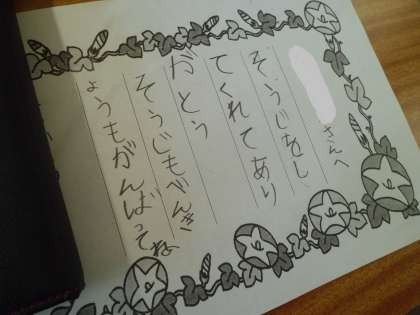 さんへ
そうじをし
てくれてあり
だとう
そうじもべんき
ょうもがんばってね